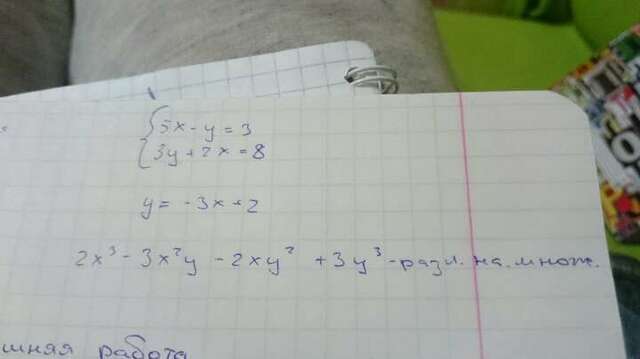 { 5x - y = 3
3y + 2x = 8
y = -3x + 2
2x³ - 3x²y - 2xy² + 3y³ - разл. на. множ.
шняя работа